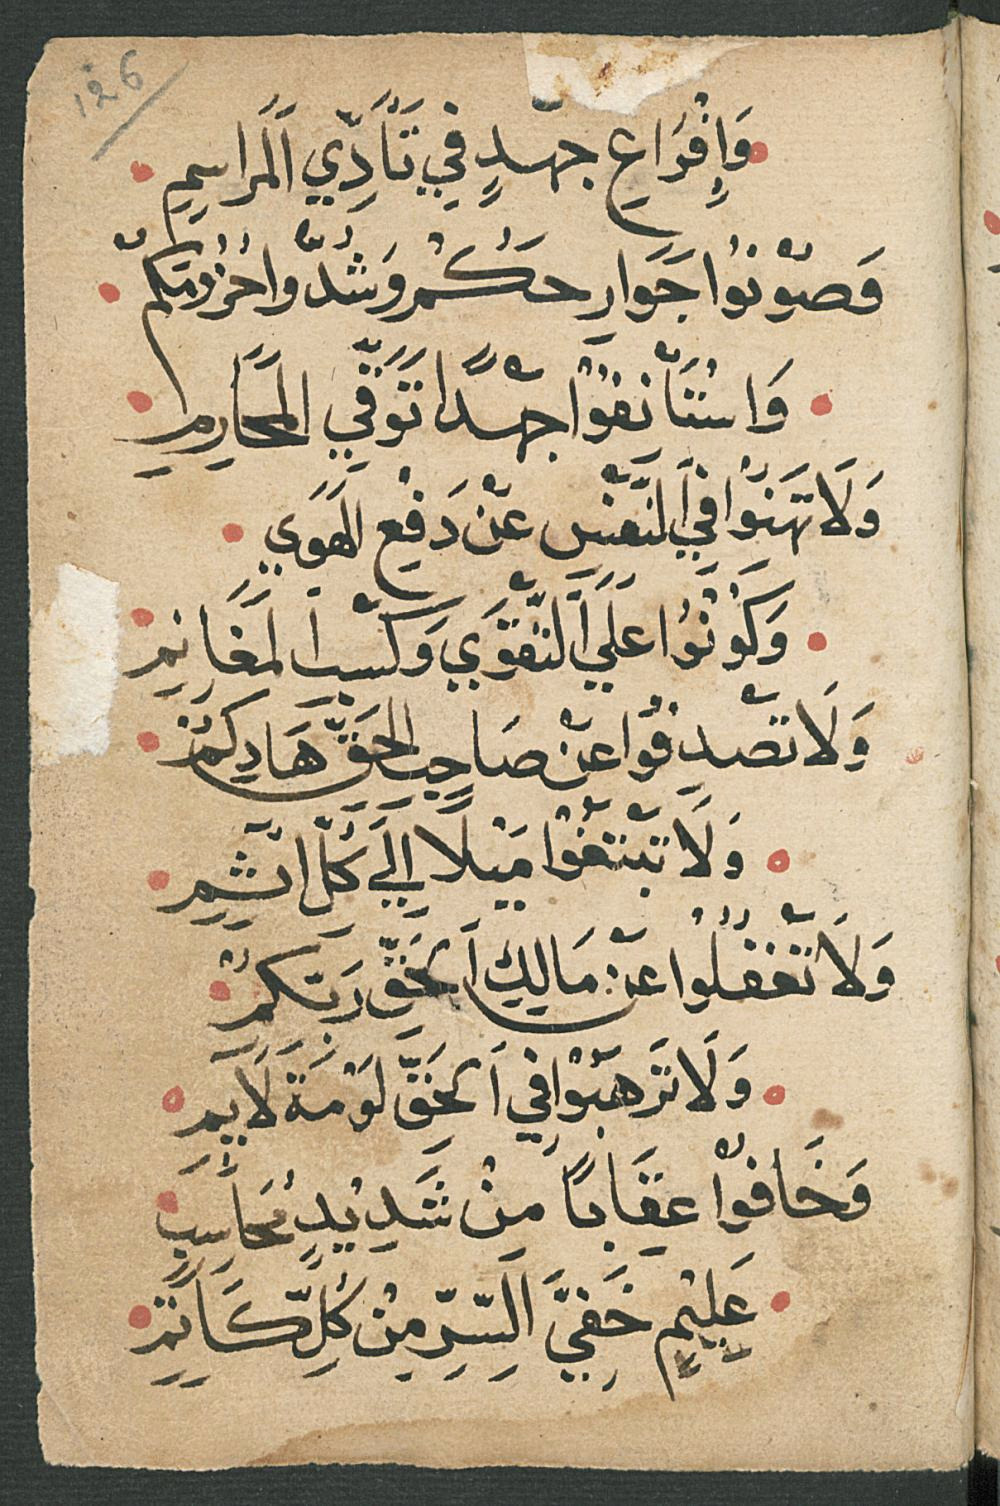 126
وَاِفْرَاعِ جهْدٍ فِي تَأَدِّي اَلَمراسِمِ
وَصوْنوُا جَوَارِحَكُمْ وَشُدّواحزْمَتكمْ
وَاسْتَأْنِفوُا جهْدًا تَوَقِّي المَحَارِمِ
وَلَا تهَنوُا فِي اَلنَّفْسِ عَنْ دَفْعِ الهَوَي
وَكوُنوُا عَلَي اَلتَّقْوَي وَكَسْبِ المَغَانِمِ
وَلَا تصْدِفوُا عَنْ صَاحِبِ الحَقِّ هَادِيكمُ
وَلَا تبْتغوُا مَيْلًا اِلَي كُلِّ اثِمِ
وَلَا تغْفلُوا عَنْ مَالِكِ اَلحَقِّ رَبِّكمُ
وَلَا ترْهَبوْا فِي اَلحَقِّ لَوْمَةَ لَايِمِ
وَخَافوْا عِقَابًا مِنْ شَدِيْدٍ مُحَاسِبٍ
عَلِيْمٍ خَفِيَّ السِّرِّ مِنْ كُلِّ كَاتِمِ